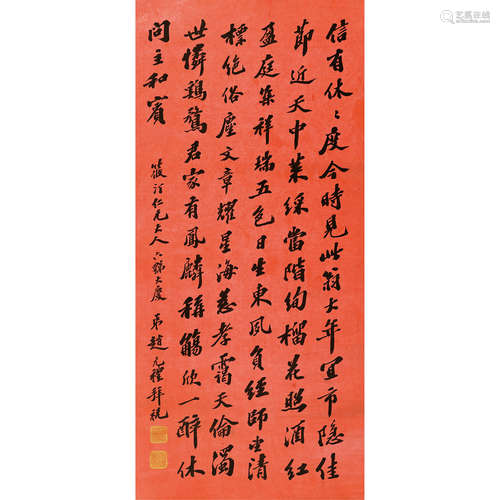 信有休休度今時見此翁大年宜市隱佳
節近天中萊綵當階絢榴花照酒紅
盈庭集祥瑞五色日生東夙負經師望清
標絕俗塵文章耀星海慈孝靄天倫濁
世憐鶏鶩君家有鳳麟稱觴欣一醉休
問主和賓
筱 仁兄大人六縣大慶 弟趙元禮拜祝